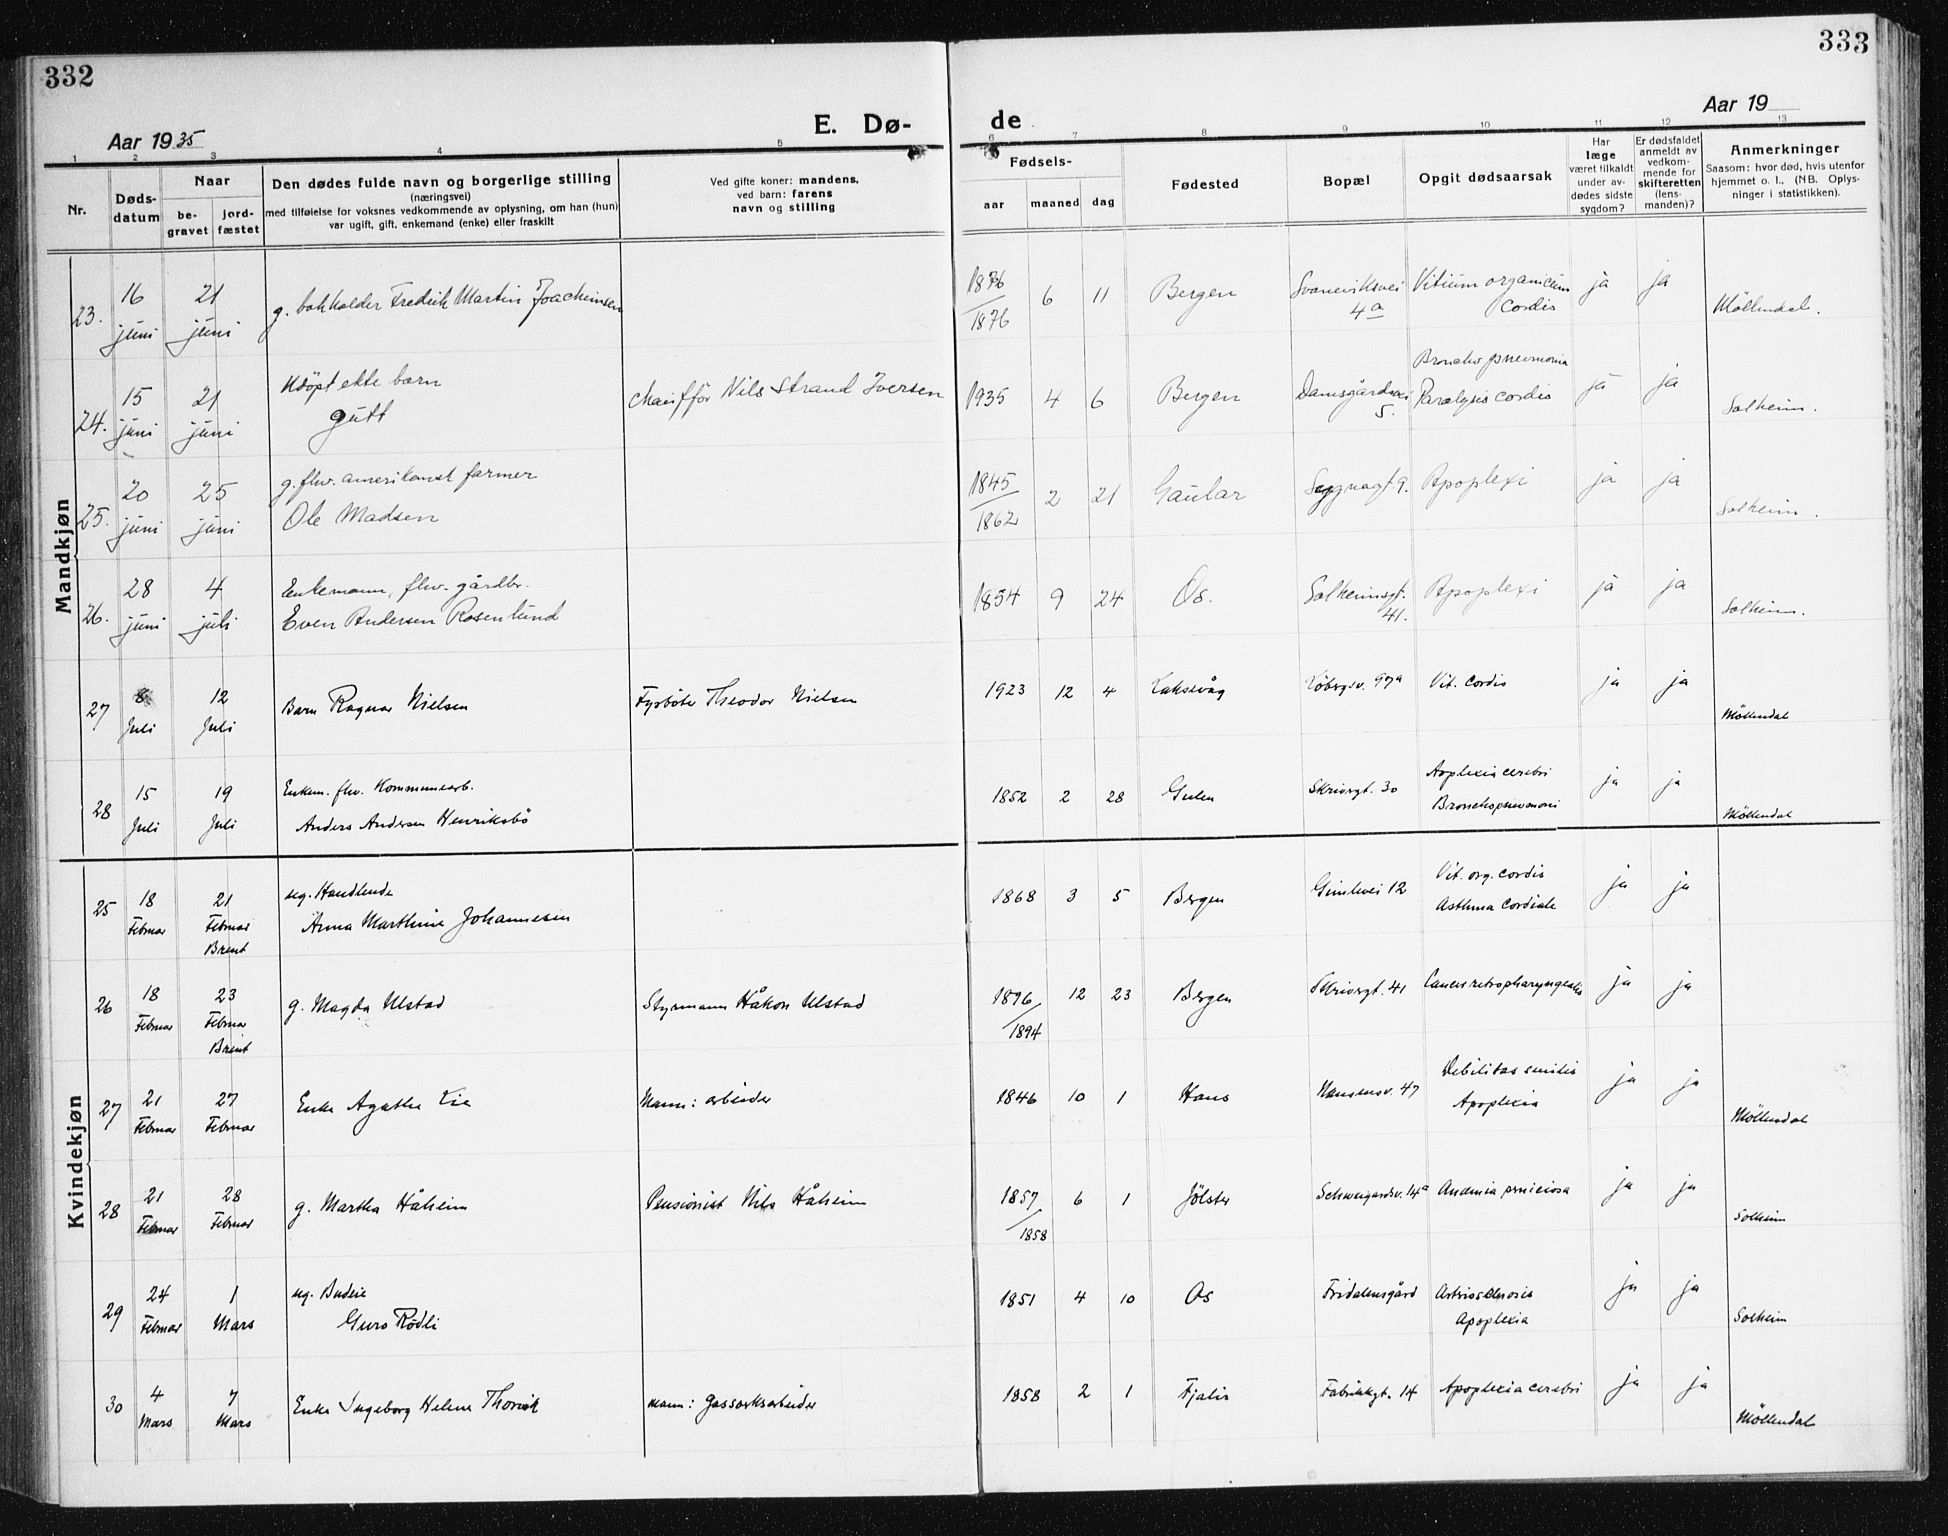 332
333
Aar 1935
E. Dø-
de
Aar 19
1 2 3 4 5 6 7 8 9 10 11 12 13
Nr.
Døds-
datum
Naar
be-
gravet
jord-
fæstet
Den dødes fulde navn og borgerlige stilling
(næringsvei)
med tilføielse for voksnes vedkommende av oplysning, om han (hun)
var ugift, gift, enkemand (enke) eller fraskilt
Ved gifte koner: mandens,
ved barn: farens
navn og stilling
Fødsels-
aar
maaned
dag
Fødested
Bopæl
Opgit dødsaarsak
Har
læge
været tilkaldt
under av-
dødes sidste
sygdom?
Er dødsfaldet
anmeldt av
vedkom-
mende for
skifteretten
(lens-
manden)?
Anmerkninger
Saasom: hvor død, hvis utenfor
hjemmet o. l., (NB. Oplys-
ninger i statistikken).
Mandkjøn
23. 16 juni 21 juni g. bokholder Fredrik Martin Joachimsen 1876/1876 6 11 Bergen 4a Vitium organicum Cordis ja ja Möllendal.
24. 15 juni 21 juni Udöpt ekte barn gutt Chaufför Nils Strand Iversen 1935 4 6 Bergen Damsgårdsvei 5. Broncho pneumonia Paralysis Cordis ja ja Solheim.
25. 20 juni 25 juni g. fhv. amerikansk farmer Ole Madsen 1845/1862 2 21 Gaular Apoplexi ja ja Solheim.
26. 28 juni 4 juli Enkemann, fhv. gårdbr. Even Andersen Rosenlund 1854 9 24 Os. Solheimsgt. 41. Apoplexi ja ja Solheim.
27 8 Juli 12 Juli Barn Ragnar Nielsen Fyrböter Theodor Nielsen 1923 12 4 Laksevåg 97a Vit. Cordis ja ja Möllendal
28 15 Juli 19 Juli Enkem. fhv. Kommunearb. Anders Andersen Henriksbö 1852 2 28 Gulen Skriversgt. 30 Applexia cerebri Bronchopneumoni ja ja Möllendal
Kvindekjøn
25 18 Februar 21 Februar Brent ug. Handlende Anna Marthine Johannesen 1868 3 5 Bergen Gimlevei 12 Vit. org. cordis Asthma Cordiale ja ja
26 18 Februar 23 Februar Brent g. Magda Ulstad Styrmann Håkon Ulstad 1896/1894 12 23 Bergen Skriversgt. 41 Cancer retropharyngealis ja ja
27 21 Februar 27 Februar Enke Agathe Lie Mann: arbeider 1846 10 1 Haus Hansensv. 47 Debilitas senilis Apoplexia ja ja Möllendal
28 21 Februar 28 Februar g. Martha Håheim Pensionist Nils Håheim 1857/1858 6 1 Jölster Schweigaardsv. 14a Anæmia perniciosa ja ja Solheim
29 24 Februar 1 Mars ug. Budeie Guro Rödli 1851 4 10 Os Fridalensgård Arteriosclerosis Apoplexia ja ja Solheim
30 4 Mars 7 Mars Enke Ingeborg Helene Mann: Gassverksarbeider 1858 2 1 Fjaler Fabrikkgt. 14 Apoplexia cerebri ja ja Möllendal